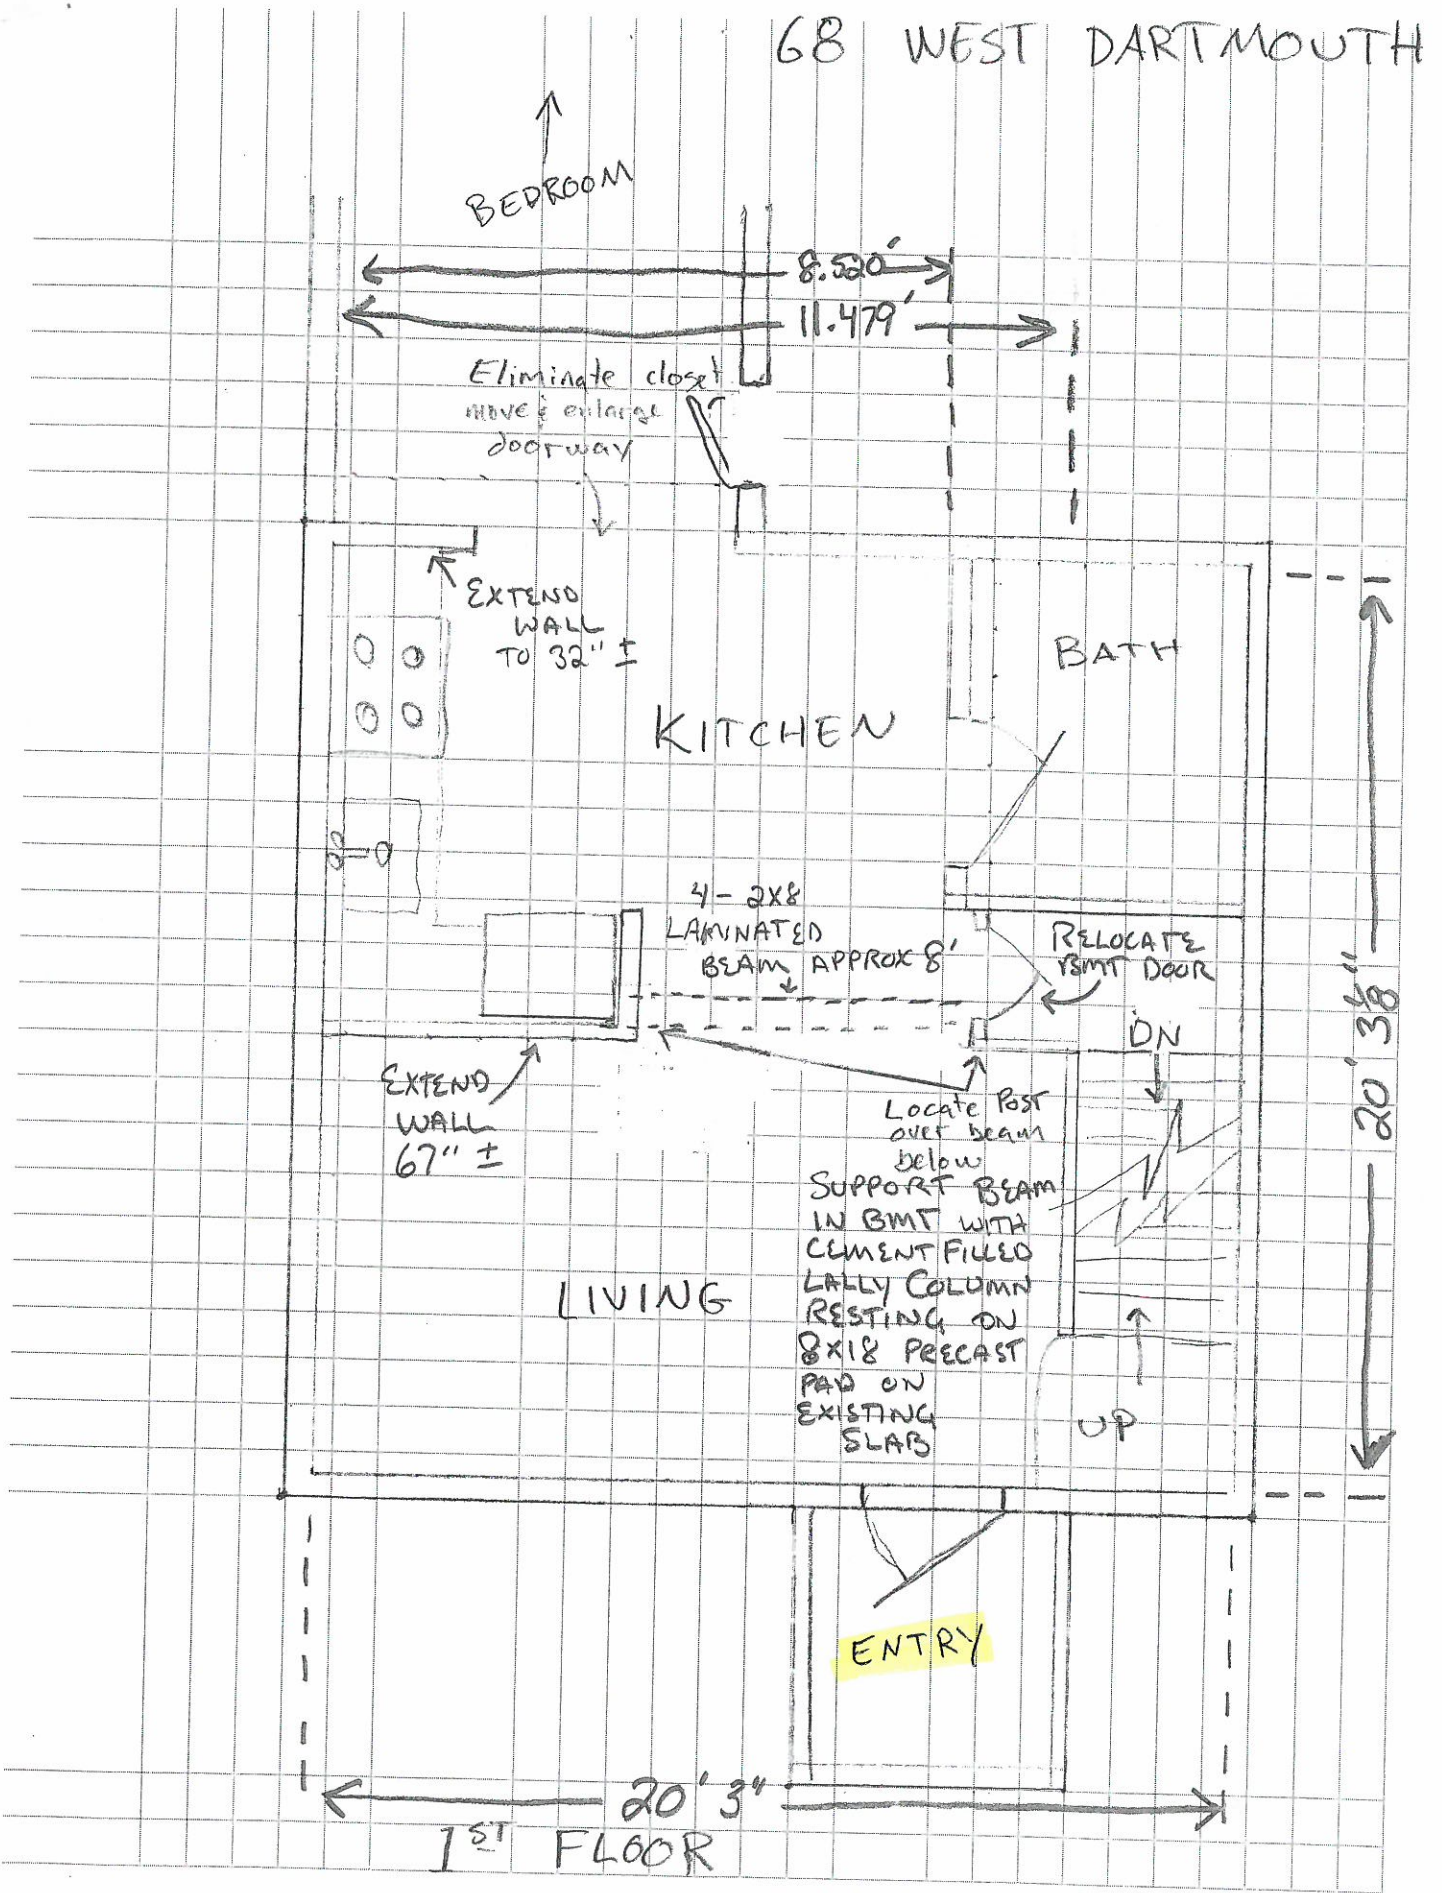 68 WEST DARTMOUTH
BEDROOM
8.520'
11.479'
Eliminate closet
move & enlarge
doorway
EXTEND
WALL
TO 32" ±
BATH
KITCHEN
4 - 2X8
LAMINATED
BEAM APPROX 8'
RELOCATE
BMT DOOR
DN
20' 3/8"
EXTEND
WALL
67" ±
Locate Post
over beam
below
SUPPORT BEAM
IN BMT WITH
CEMENT FILLED
LALLY COLUMN
RESTING ON
8X18 PRECAST
PAD ON
EXISTING
SLAB
LIVING
UP
ENTRY
20' 3"
1ST FLOOR